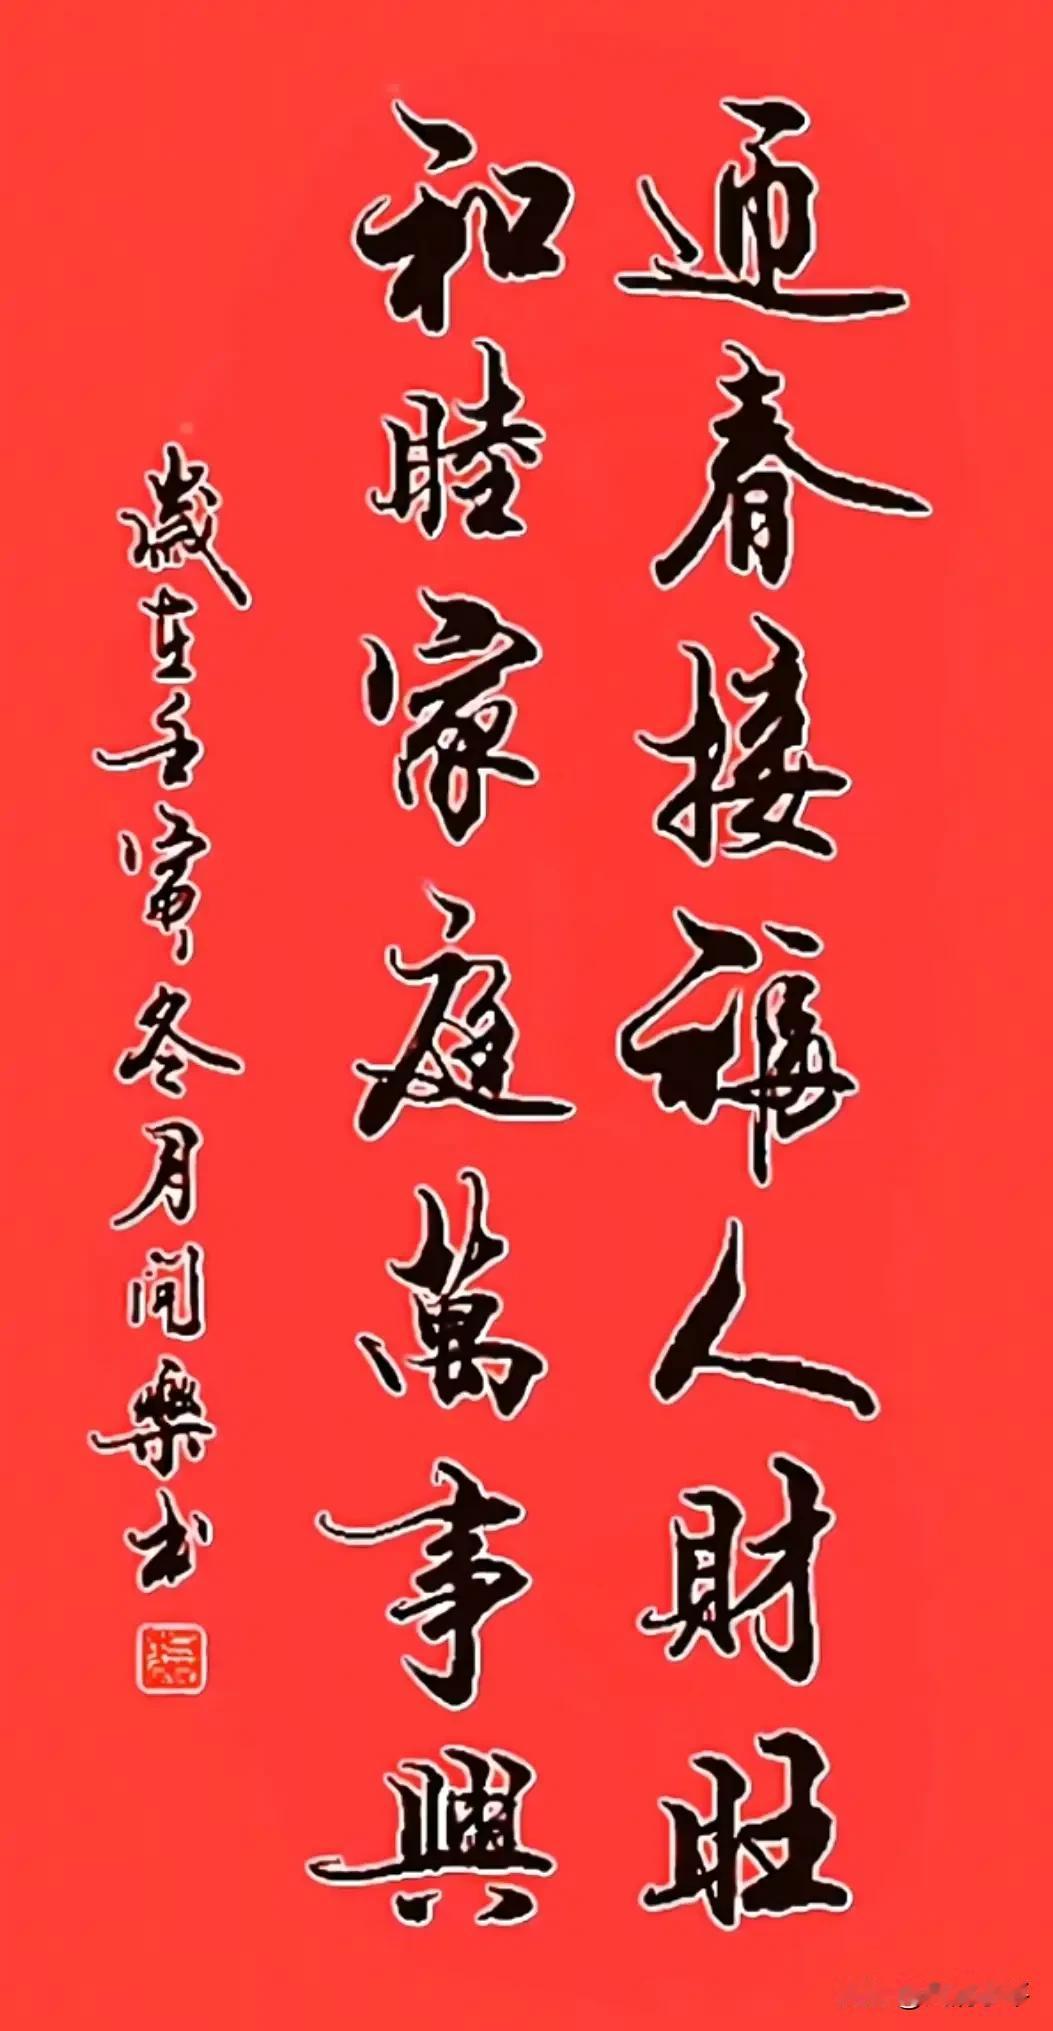 迎春接福人財旺
和睦家庭萬事興
歲在壬寅冬月樂书